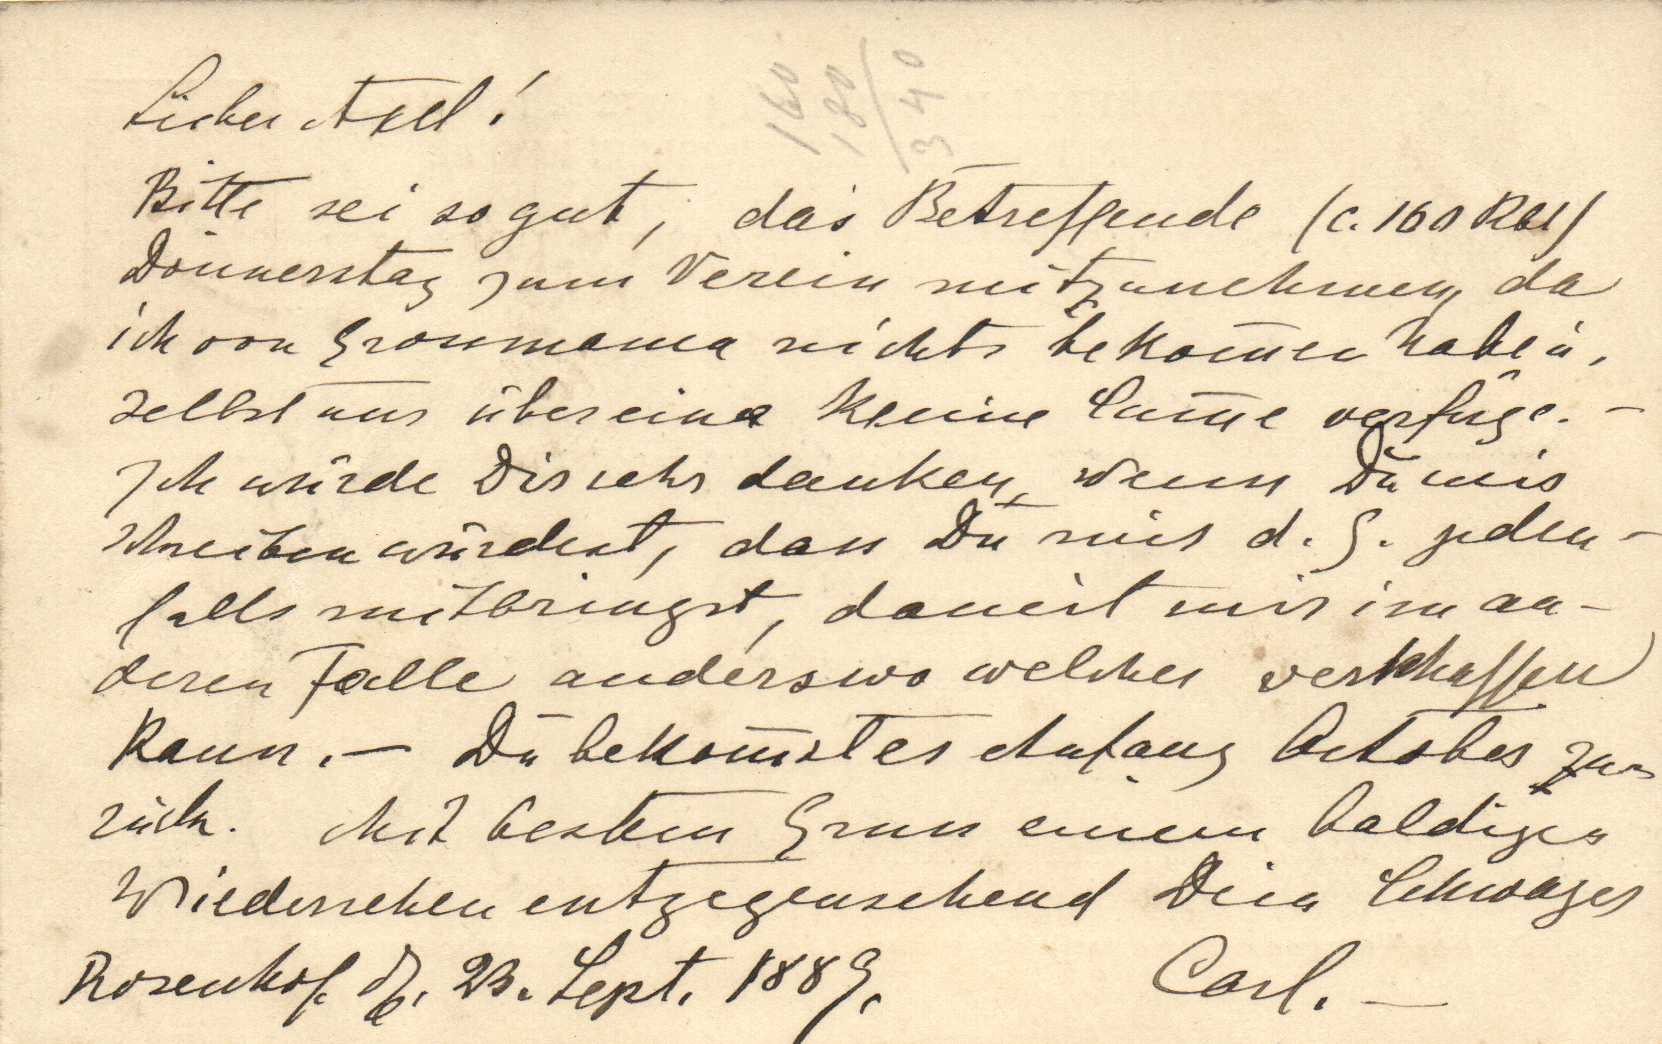 Lieber Axel!
160
180
340
Bitte sei so gut, das Betreffende (c. 160 Rbl)
Donnerstag zum Verein mitzunehmen, da
ich von Grossmama nichts bekom̄en habe u.
selbst nur über eine kleine Sum̄e verfüge. –
Ich würde Dir sehr danken, wenn Du mir
schreiben würdest, dass Du mir d. G. jeden-
falls mitbringst, damit mir im an-
deren Falle anderswo welches verschaffen
kann. – Du bekom̄st es Anfang October zu-
rück. Mit bestem Gruss einem baldigen
Wiedersehen entgegensehend Dein Schwager
Rosenhof. d. 23. Sept. 1889. Carl. –